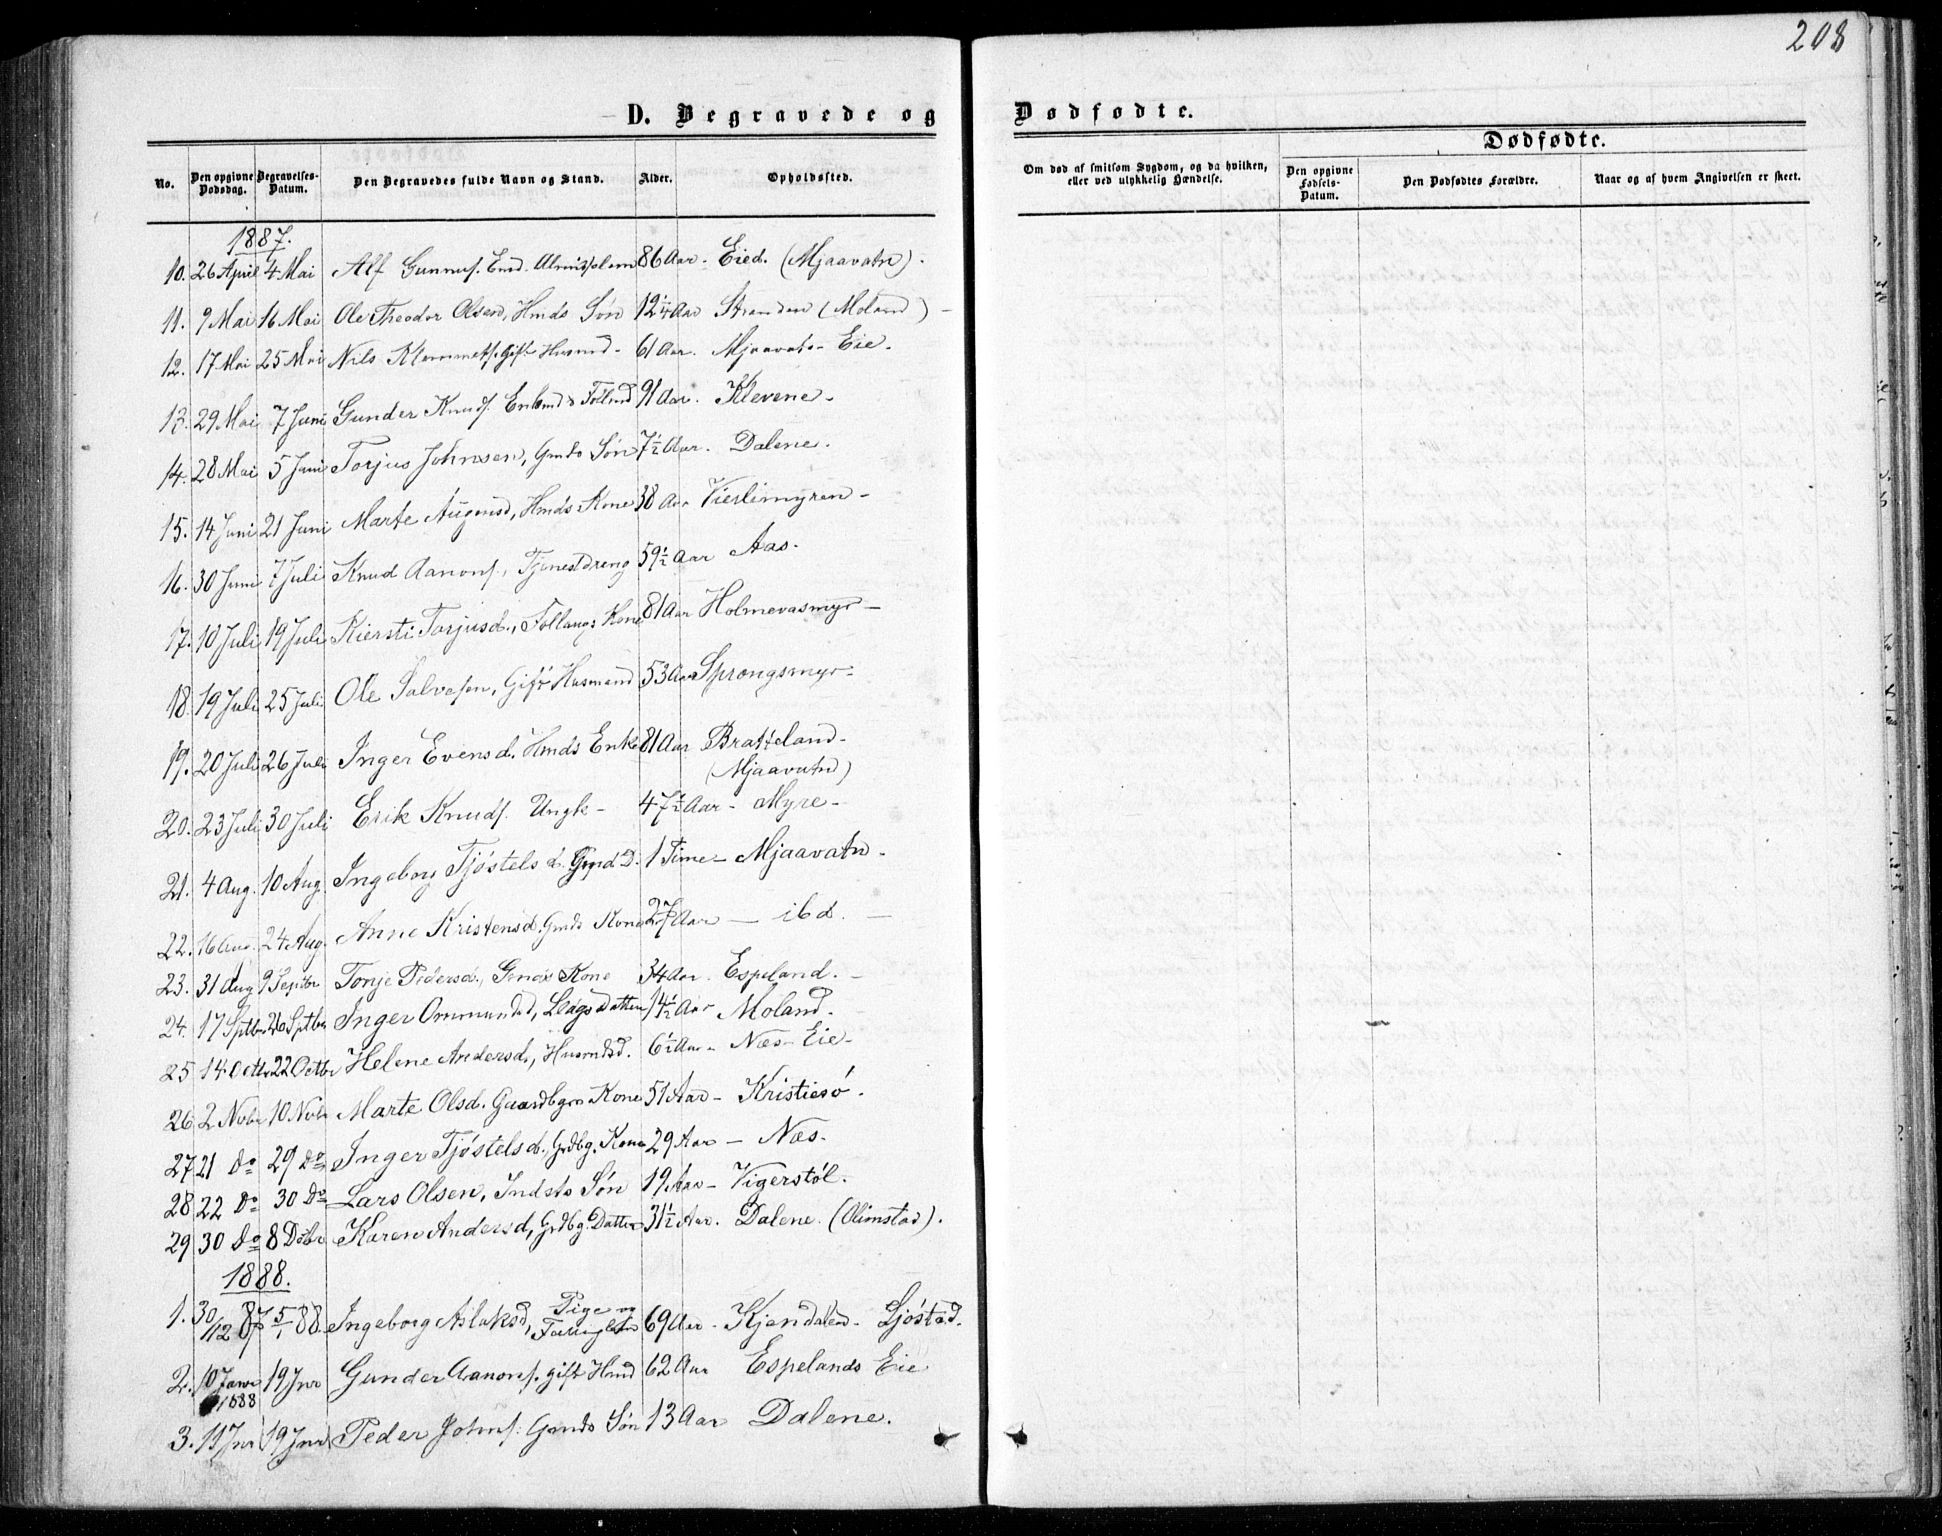 208
D. Begravede og Dødfødte.
No. Den opgivne Dødsdag. Begravelses-Datum. Den Begravedes fulde Navn og Stand. Alder. Opholdssted.
Om død af smitsom Sygdom, og da hvilken, eller ved ulykkelig Hændelse.
Dødfødte.
Den opgivne Fødsels-Datum. Den Dødfødtes Forældre. Naar og af hvem Angivelsen er skeet.
1887.
10. 26 April 4 Mai Alf Gunnufs. Enkd. Almisselem 86 Aar. Eied. (Mjaavatn).
11. 9 Mai 16 Mai Ole Theodor Olsen, Hmds Søn 12 1/4 Aar Stranden (Moland) -
12. 17 Mai 25 Mai Nils Klemmets. Gift Husmd - 61 Aar. Mjaavatn - Eie.
13. 29 Mai 7 Juni Gunder Knuds. Enkmd & Føllmd 91 Aar. Klevene -
14. 28 Mai 5 Juni Torjus Johnsen, Gmds Søn 7 1/2 Aar. Dalene.
15. 14 Juni 21 Juni Marte Aügensd, Hmds Kone 38 Aar Vierlimyren -
16. 30 Juni 7 Juli Knud Aanons., Tjenestdreng 59 1/2 Aar Aas.
17. 10 Juli 19 Juli Kiersti Torjusd., Follaugs Kone 81 Aar Holmevasmyr -
18. 19 Juli 25 Juli Ole Salvesen, Gift Husmand 53 Aar Sprongsmyr -
19. 20 Juli 26 Juli Inger Evensd. Hmds Enke 81 Aar Bratteland -
(Mjaavatn)
20. 23 Juli 30 Juli Erik Knuds. Ungk - 47 1/2 Aar - Myre -
21. 4 Aug. 10 Aug. Ingeborg Tjöstelsd. Gmd D. 1 Time - Mjaavatn -
22. 16 Aug. 24 Aug. Anne Kristensd. Gmds Kone 27 Aar - ibd. -
23. 31 Aug 9 Septbr Tonje Pedersd., Gmds Kone 34 Aar. Espeland. -
24. 17 Sptbr 26 Sptbr Inger Ommundsd, Lægsdatter 14 1/2 Aar Moland.
25 14 Octbr 22 Octbr Helene Andersd., Husmdsd. 6 1/2 Aar - Næs - Eie -
26 2 Novbr 10 Nvbr Marte Olsd. Gaardbgrs Kone 51 Aar - Kristiesö.
27 21 Do 29 Do Inger Tjöstelsd., Grdbg. Kone 29 Aar - Næs.
28 22 Do 30 Do Lars Olsen, Indsts Søn 19 Aar - Vigerstöl.
29 30 Do 8 Dcbr Karen Andersd, Grdbg. Datter 31 1/2 Aar. Dalene. (Olimstad).
1888.
1. 30/12 87 5/1 88 Ingeborg Aslaksd, Pige og 69 Aar - Kjendalen - Ljöstad.
2. 10 Janr 1888 19 Jnr Gunder Aanons. gift Hmd 62 Aar Espelands Eie
3. 11 Jnr 19 Jnr Peder Johns. Gmds Søn 13 Aar Dalene.